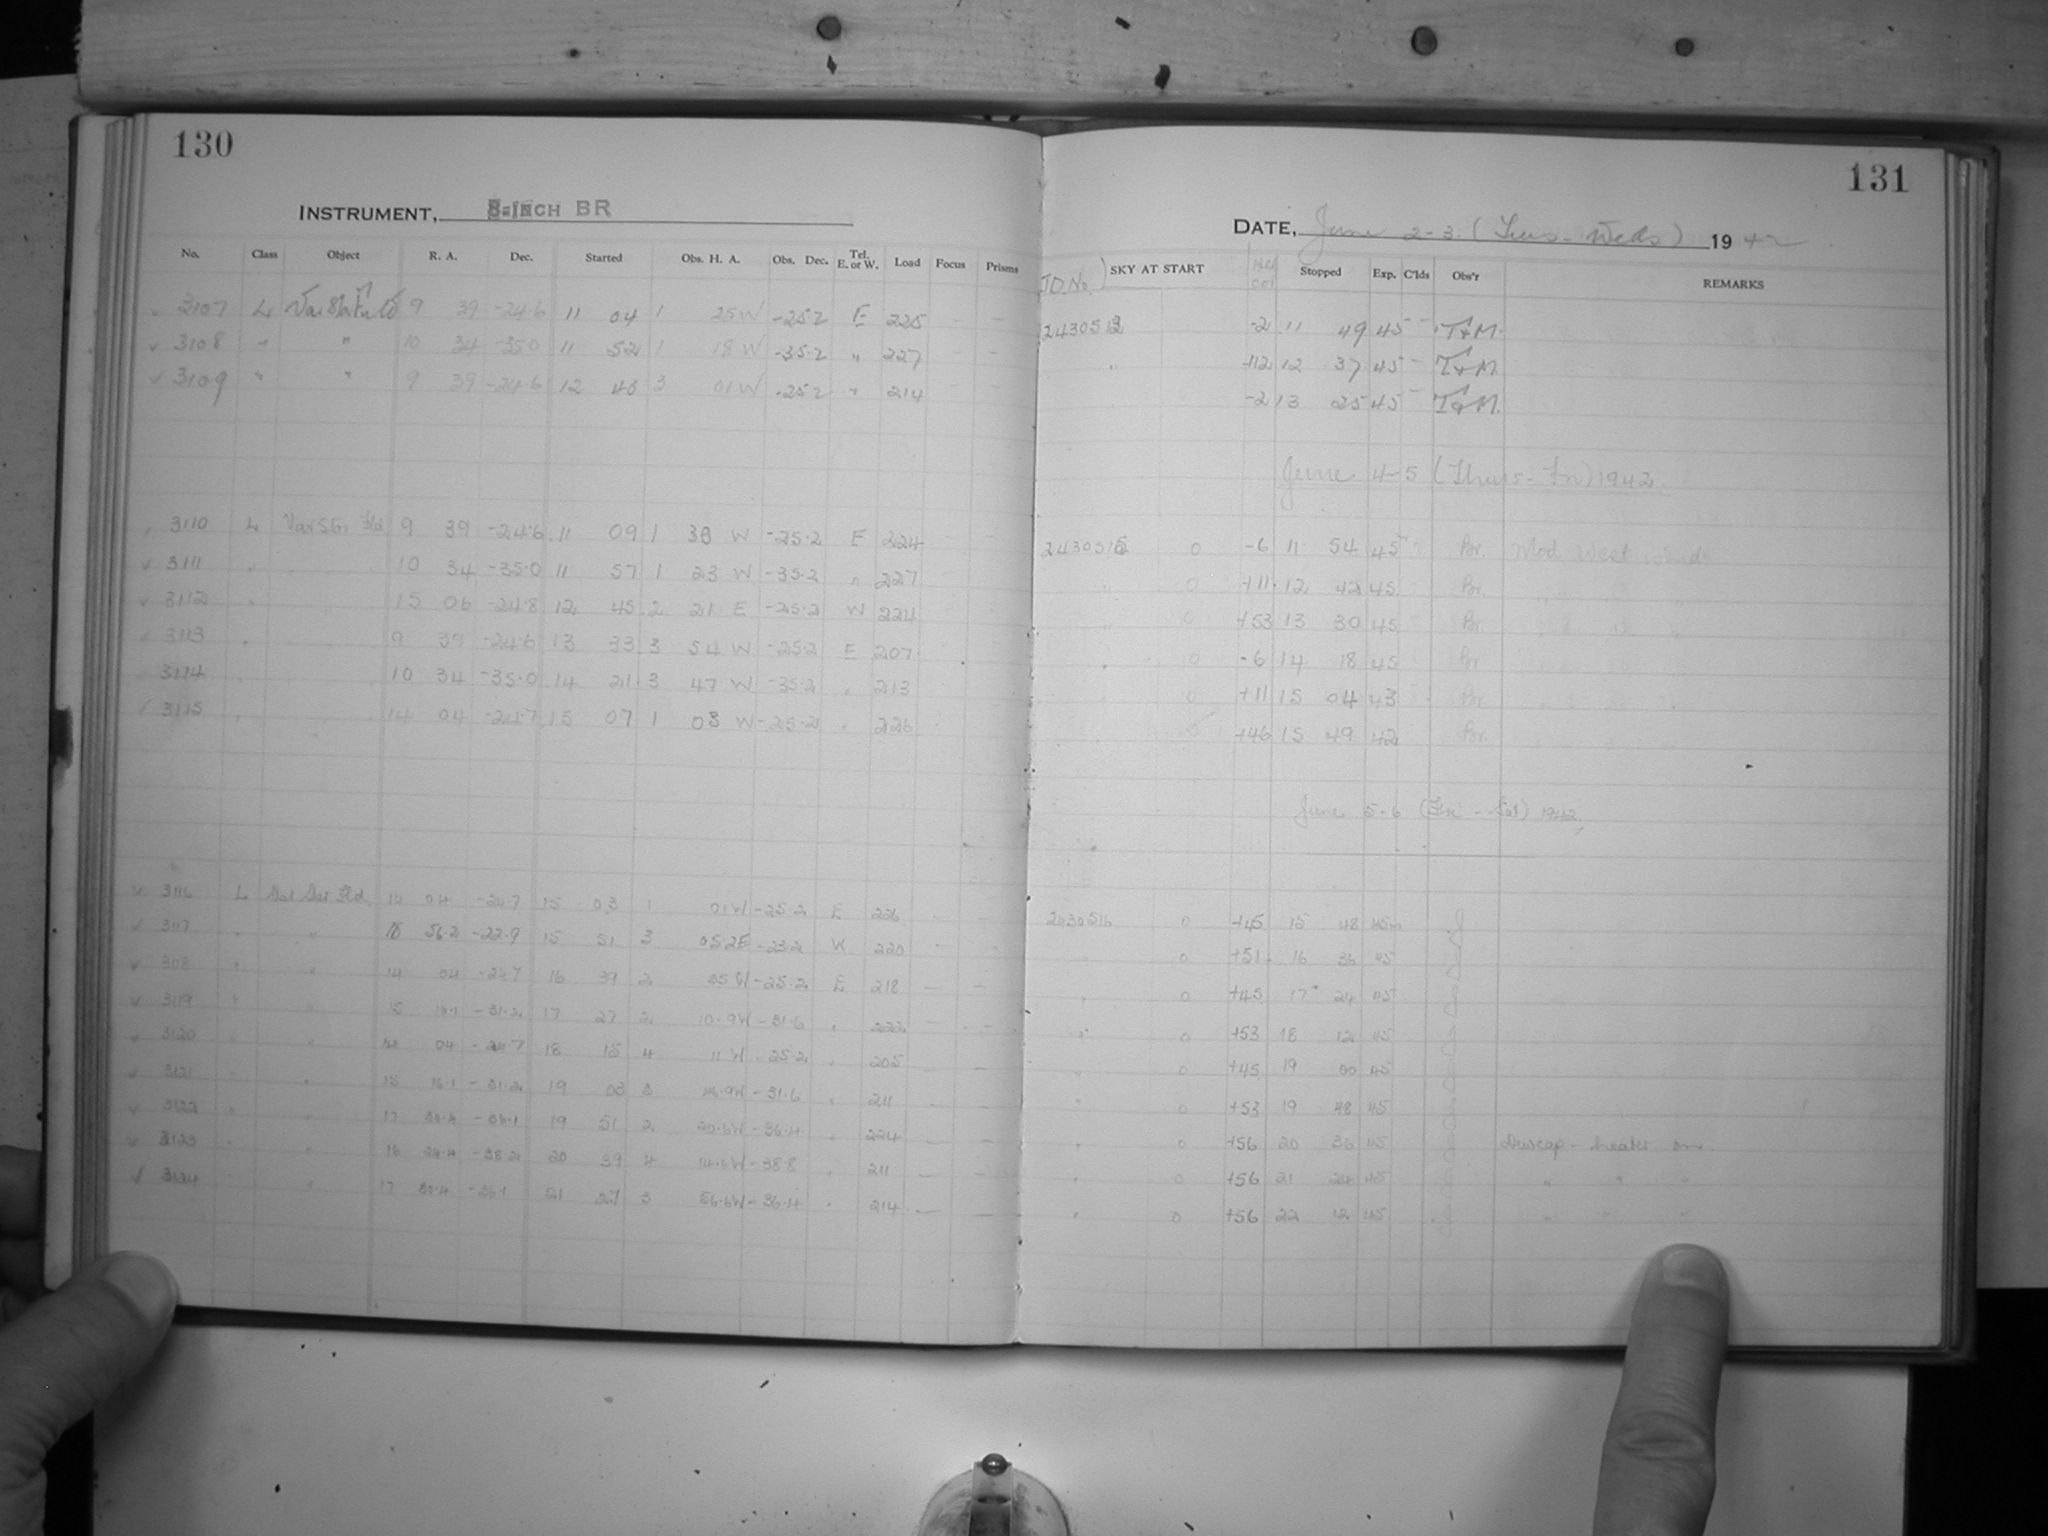 130
INSTRUMENT, 8-INCH BR
No. Class Object R. A. Dec. Started Obs. H. A. Obs. Dec. Tel. E. or W. Load Focus Prisms
3107 L 9 39 -24.6 11 04 1 25 W -25.2 E 225 - -
3108 " " 10 34 -35.0 11 52 1 18 W -35.2 " 227 - -
3109 " " 9 39 -24.6 12 40 3 01 W -25.2 " 214
3110 L Var Str Fld 9 39 -24.6 11 09 1 30 W -25.2 E 224
3111 " 10 34 -35.0 11 57 1 23 W -35.2 " 227
3112 " 15 06 -24.8 12 45 2 21 E -25.2 W 224
3113 " 9 39 -24.6 13 33 3 54 W -25.2 E 207
3114 10 34 -35.0 14 21 3 47 W -35.2 " 213
3115 14 04 -24.7 15 07 1 08 W -25.2 " 226
3116 L Fld. 14 04 -24.7 15 03 1 01 W -25.2 E 226
3117 " " 56.2 -22.9 15 51 3 05.2 E -23.2 W 220
3118 " " 14 04 -24.7 16 39 2 W -25.2 E 218 - -
3119 " " 15 -31.2 17 27 2 10.9 W -31.6 " 222 - -
3120 " 14 04 -24.7 18 15 4 11 W -25.2 " 205
3121 " " 15 16.1 -31.2 19 03 3 -31.6 " 211 - -
3122 " " 17 19 51 2 -36.4 " 224 - -
3123 " " 16 24.4 -38.2 20 39 4 -38.8 " 211 - -
3124 " " 17 3 56.6 W -36.4 " 214 - -
131
DATE, June 2-3 (Tues - Weds) 1942
JD No. SKY AT START Stopped Exp. C'lds Obs'r REMARKS
-2 11 49 45 - T&M.
" +12 12 37 45 - T&M
-2 13 25 45 - T&M.
June 4-5 (Thurs - Fri) 1942.
2430515 0 -6 11 54 45 Br. Mod West winds
" 0 +11 12 42 45 Br.
" 0 +53 13 30 45 Br.
" 0 -6 14 18 45 Br.
0 +11 15 04 43 Br.
+46 15 49 42 Br.
June 5-6 (Fri - Sat) 1942.
2430516 0 +45 15 48 45m J
0 +51 16 36 45 J
" 0 +45 17 24 45 J
" 0 +53 18 12 45 J
" 0 +45 19 00 45 J
" 0 +53 19 48 45 J
" 0 +56 20 36 45 J Dewcap - heater on
" 0 +56 21 24 45 J " " "
" 0 +56 22 12 45 J " " "